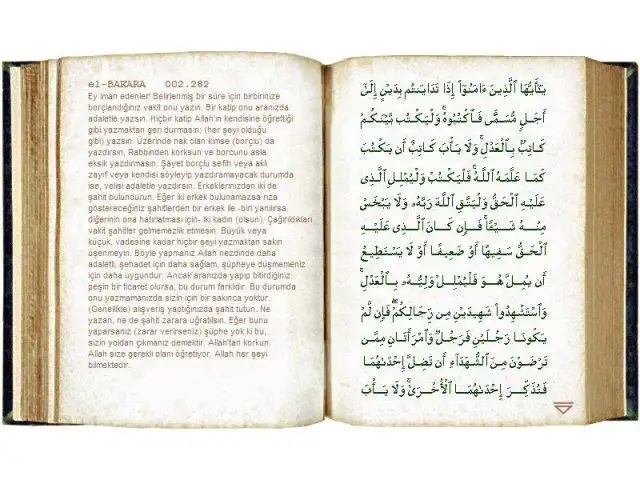 el-BAKARA 002.282
Ey iman edenler! Belirlenmiş bir süre için birbirinize
borçlandığınız vakit onu yazın. Bir katip onu aranızda
adaletle yazsın. Hiçbir katip Allah'ın kendisine öğrettiği
gibi yazmaktan geri durmasın; (her şeyi olduğu
gibi) yazsın. Üzerinde hak olan kimse (borçlu) da
yazdırsın, Rabbinden korksun ve borcunu asla
eksik yazdırmasın. Şayet borçlu sefih veya aklı
zayıf veya kendisi söyleyip yazdıramayacak durumda
ise, velisi adaletle yazdırsın. Erkeklerinizden iki de
şahit bulundurun. Eğer iki erkek bulunamazsa rıza
göstereceğiniz şahitlerden bir erkek ile -biri yanılırsa
diğerinin ona hatırlatması için- iki kadın (olsun). Çağırıldıkları
vakit şahitler gelmemezlik etmesin. Büyük veya
küçük, vadesine kadar hiçbir şeyi yazmaktan sakın
üşenmeyin. Böyle yapmanız Allah nezdinde daha
adaletli, şehadet için daha sağlam, şüpheye düşmemeniz
için daha uygundur. Ancak aranızda yapıp bitirdiğiniz
peşin bir ticaret olursa, bu durum farklıdır. Bu durumda
onu yazmamanızda sizin için bir sakınca yoktur.
(Genellikle) alışveriş yaptığınızda şahit tutun. Ne
yazan, ne de şahit zarara uğratılsın. Eğer bunu
yaparsanız (zarar verirseniz) şüphe yok ki bu,
sizin yoldan çıkmanız demektir. Allah'tan korkun.
Allah size gerekli olanı öğretiyor. Allah her şeyi
bilmektedir.
يَـٰٓأَيُّهَا ٱلَّذِينَ ءَامَنُوٓا۟ إِذَا تَدَايَنتُم بِدَيْنٍ إِلَىٰٓ
أَجَلٍ مُّسَمًّى فَٱكْتُبُوهُ ۚ وَلْيَكْتُب بَّيْنَكُمْ
كَاتِبٌۢ بِٱلْعَدْلِ ۚ وَلَا يَأْبَ كَاتِبٌ أَن يَكْتُبَ
كَمَا عَلَّمَهُ ٱللَّهُ ۚ فَلْيَكْتُبْ وَلْيُمْلِلِ ٱلَّذِى
عَلَيْهِ ٱلْحَقُّ وَلْيَتَّقِ ٱللَّهَ رَبَّهُۥ وَلَا يَبْخَسْ
مِنْهُ شَيْـًٔا ۚ فَإِن كَانَ ٱلَّذِى عَلَيْهِ
ٱلْحَقُّ سَفِيهًا أَوْ ضَعِيفًا أَوْ لَا يَسْتَطِيعُ
أَن يُمِلَّ هُوَ فَلْيُمْلِلْ وَلِيُّهُۥ بِٱلْعَدْلِ ۚ
وَٱسْتَشْهِدُوا۟ شَهِيدَيْنِ مِن رِّجَالِكُمْ ۖ فَإِن لَّمْ
يَكُونَا رَجُلَيْنِ فَرَجُلٌ وَٱمْرَأَتَانِ مِمَّن
تَرْضَوْنَ مِنَ ٱلشُّهَدَآءِ أَن تَضِلَّ إِحْدَىٰهُمَا
فَتُذَكِّرَ إِحْدَىٰهُمَا ٱلْأُخْرَىٰ ۚ وَلَا يَأْبَ